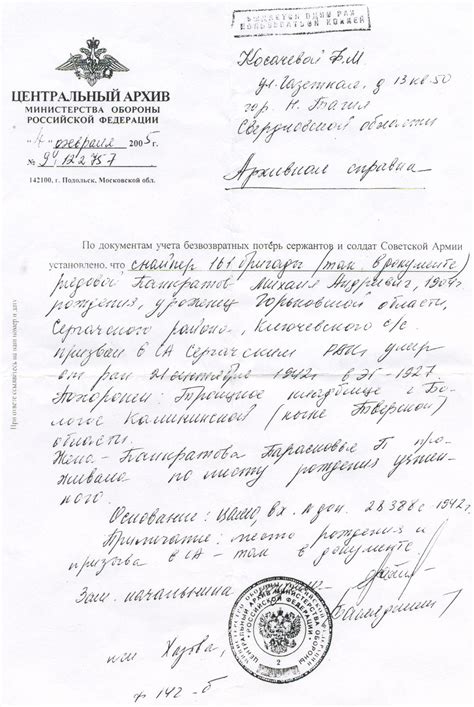 ВЫДАЕТСЯ ОДИН РАЗ
ЦЕНТРАЛЬНЫЙ АРХИВ
МИНИСТЕРСТВА ОБОРОНЫ
РОССИЙСКОЙ ФЕДЕРАЦИИ
"4" февраля 2005 г.
№ 9/122757
142100, г. Подольск, Московской обл.
Косачевой Ф.М.
ул. Газетная, д 13 кв. 50
гор. Н. Тагил
Свердловской области
Архивная справка
По документам учета безвозвратных потерь сержантов и солдат Советской Армии
установлено, что снайпер 161 бригады (так в документе)
рядовой Панкратов Михаил Андреевич, 1904
рождения, уроженец Горьковской области,
Сергачского района, Ключевского с/с.
призван в СА Сергачским РВК, умер
от ран 21 сентября 1942г в ЭГ-1927.
Похоронен: Троицкое кладбище г. Бо-
логое Калининской (ныне Тверской)
области.
Жена - Панкратова Парасковья П про-
живала по месту рождения
Основание: ЦАМО, вх. № дон. 28388с 1942г.
Примечание: место рождения и
призыва в СА - так в документе
Зам. начальника
исп Хохва,
ф 142-б
При ответе ссылайтесь на наш номер и дату
ЦЕНТРАЛЬНЫЙ АРХИВ МИНИСТЕРСТВА ОБОРОНЫ
РОССИЙСКОЙ ФЕДЕРАЦИИ
2